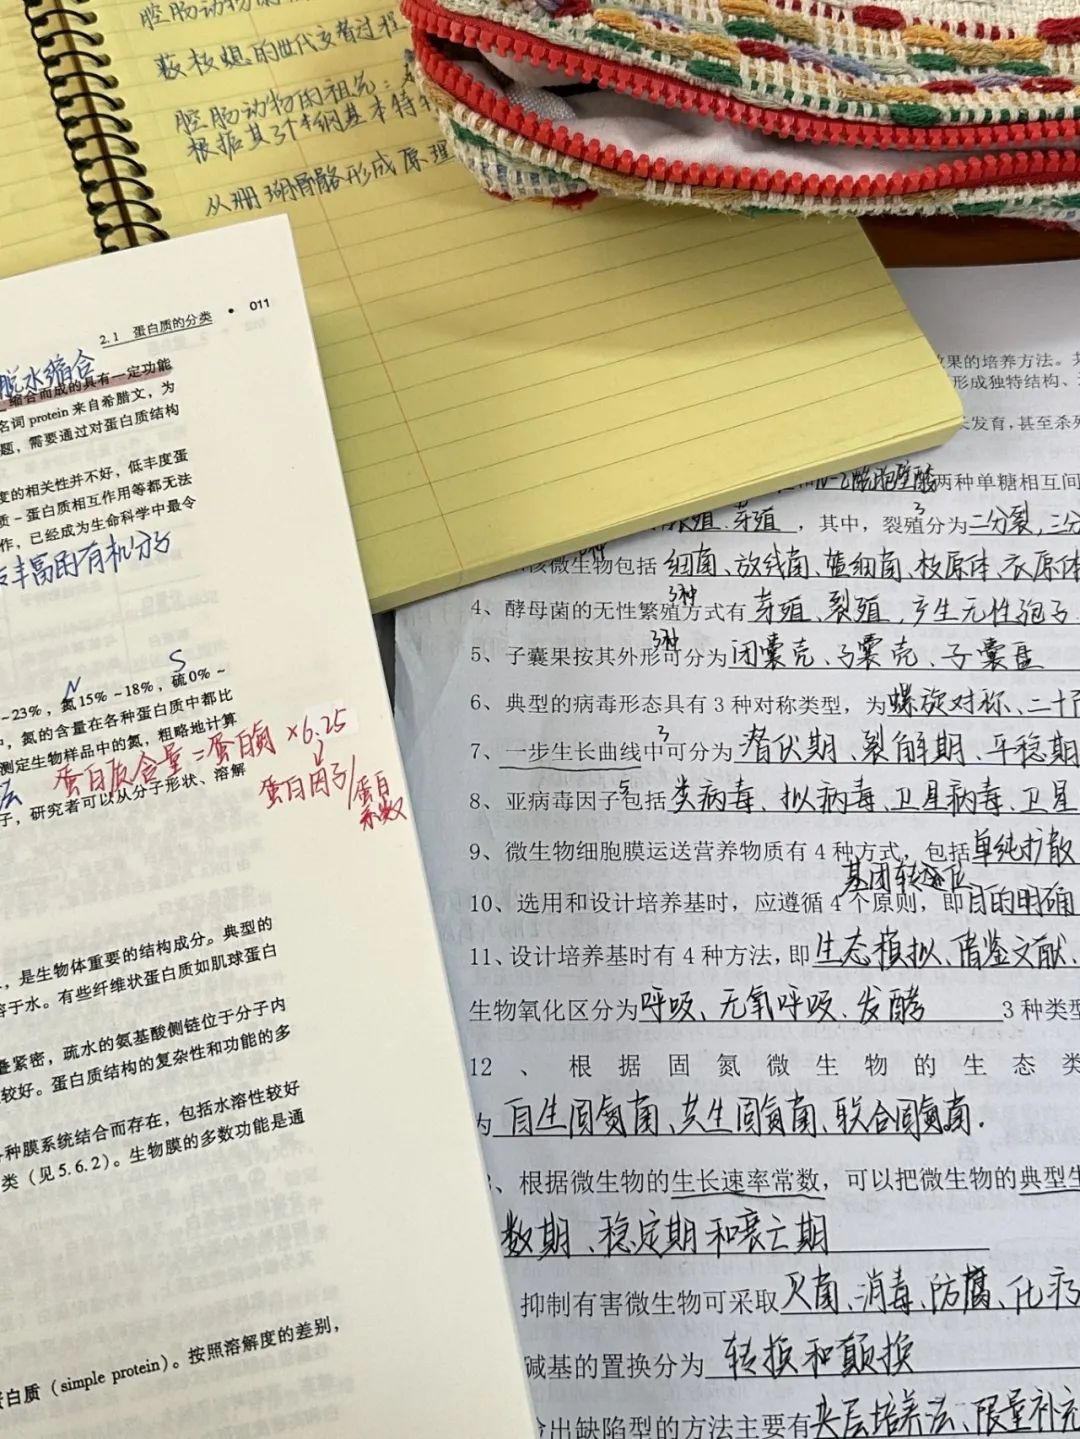 腔肠动物的
薮枝螅的世代交替过程
腔肠动物的祖先：
根据其3个纲基本特
从珊瑚骨骼形成原理
2.1 蛋白质的分类 • 011
脱水缩合
缩合而成的具有一定功能
名词 protein 来自希腊文，为
题，需要通过对蛋白质结构
度的相关性并不好，低丰度蛋
质-蛋白质相互作用等都无法
作，已经成为生命科学中最令
丰富的有机分子
N
S
~23%，氮15%~18%，硫0%~
，氮的含量在各种蛋白质中都比
测定生物样品中的氮，粗略地计算
蛋白质含量=蛋白氮×6.25
蛋白因子/蛋白系数
子，研究者可以从分子形状、溶解
，是生物体重要的结构成分。典型的
溶于水。有些纤维状蛋白质如肌球蛋白
叠紧密，疏水的氨基酸侧链位于分子内
较好。蛋白质结构的复杂性和功能的多
各种膜系统结合而存在，包括水溶性较好
类（见5.6.2）。生物膜的多数功能是通
蛋白质（simple protein）。按照溶解度的差别，
效果的培养方法。
形成独特结构、
长发育，甚至杀死
N-乙酰胞壁酸两种单糖相互间
芽殖，其中，裂殖分为3二分裂，三分
核微生物包括细菌、放线菌、蓝细菌、枝原体、衣原体
4、酵母菌的无性繁殖方式有3种芽殖、裂殖、产生无性孢子
5、子囊果按其外形可分为3种闭囊壳、子囊壳、子囊盘
6、典型的病毒形态具有3种对称类型，为螺旋对称、二十
7、一步生长曲线中可分为3潜伏期、裂解期、平稳期
8、亚病毒因子包括5类病毒、拟病毒、卫星病毒、卫星
9、微生物细胞膜运送营养物质有4种方式，包括单纯扩散
基团转移位
10、选用和设计培养基时，应遵循4个原则，即目的明确
11、设计培养基时有4种方法，即生态模拟、借鉴文献、
生物氧化区分为呼吸、无氧呼吸、发酵3种类型
12、根据固氮微生物的生态类
为自生固氮菌、共生固氮菌、联合固氮菌.
、根据微生物的生长速率常数，可以把微生物的典型生
数期、稳定期和衰亡期
抑制有害微生物可采取灭菌、消毒、防腐、化疗
碱基的置换分为转换和颠换
出缺陷型的方法主要有夹层培养法、限量补充